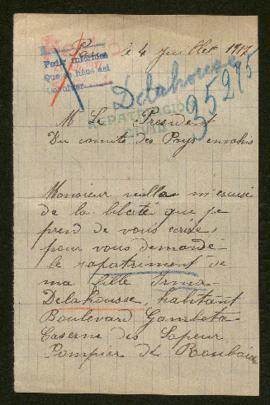 Paris le 4 Juillet 1917
Pedir informes
Que se hano así
Delahousse
35215
REPATRIACIO
M Le President
Du comité des Pays envahis
Monsieur veuillez m'excusé
de la liberté que je
prend de vous écrire,
pour vous demande
le rapatriment de
ma fille Irma
Delahousse, habitant
Boulevard Gambeta
Caserne des Sapeur
Pompier de Roubaix